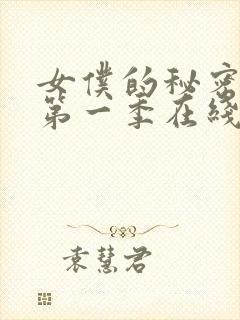 女僕的秘密
第一季在线
袁慧君